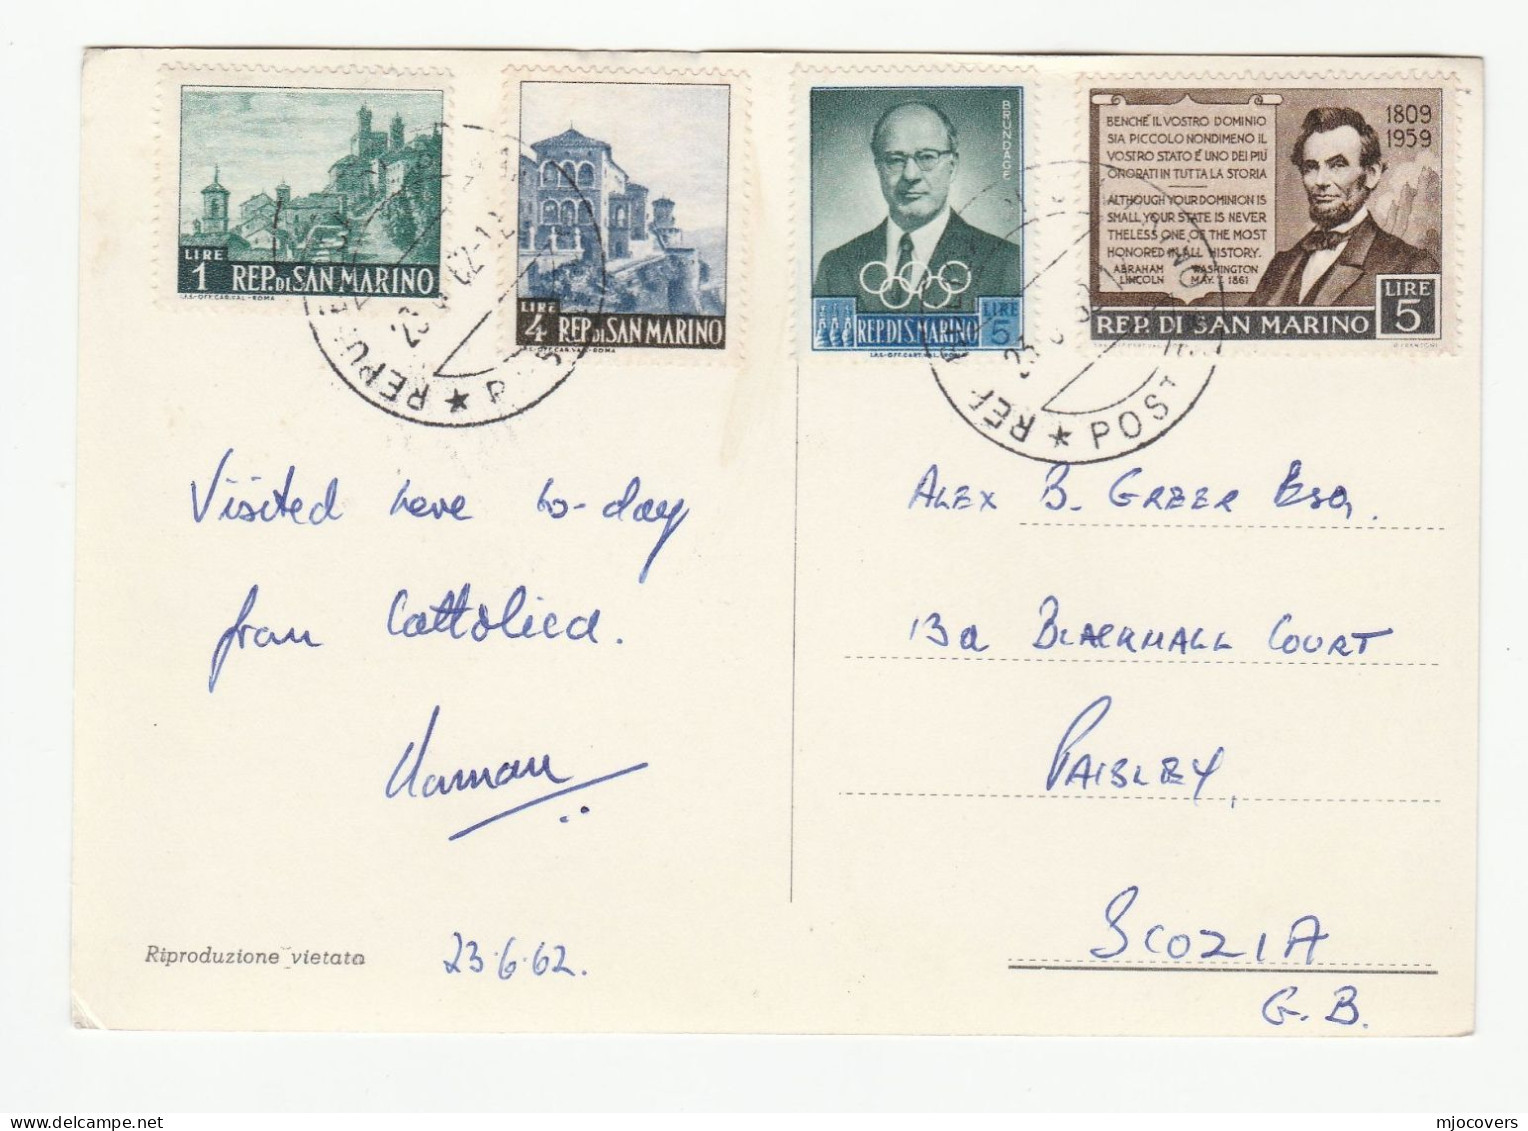 LIRE
1 REP. DI SAN MARINO
I.P.S.-OFF. CAR. VAL. - ROMA
LIRE
4 REP. DI SAN MARINO
BRUNDAGE
REP. DI S. MARINO LIRE 5
I.P.S.-OFF. CART. VAL. ROMA
BENCHÉ IL VOSTRO DOMINIO
SIA PICCOLO NONDIMENO IL
VOSTRO STATO È UNO DEI PIÙ
ONORATI IN TUTTA LA STORIA
ALTHOUGH YOUR DOMINION IS
SMALL, YOUR STATE IS NEVER
THELESS ONE OF THE MOST
HONORED IN ALL HISTORY.
ABRAHAM WASHINGTON
LINCOLN MAY. 7. 1861
1809
1959
LIRE
REP. DI SAN MARINO 5
23 6 62-1
REPU ★ P
23
REP ★ POST
Visited here to-day
from Cattolica.
Norman
Riproduzione vietata
23.6.62.
ALEX B. GREER Esq.
13a BLACKHALL COURT
PAISLEY,
SCOZIA
G. B.
mjocovers